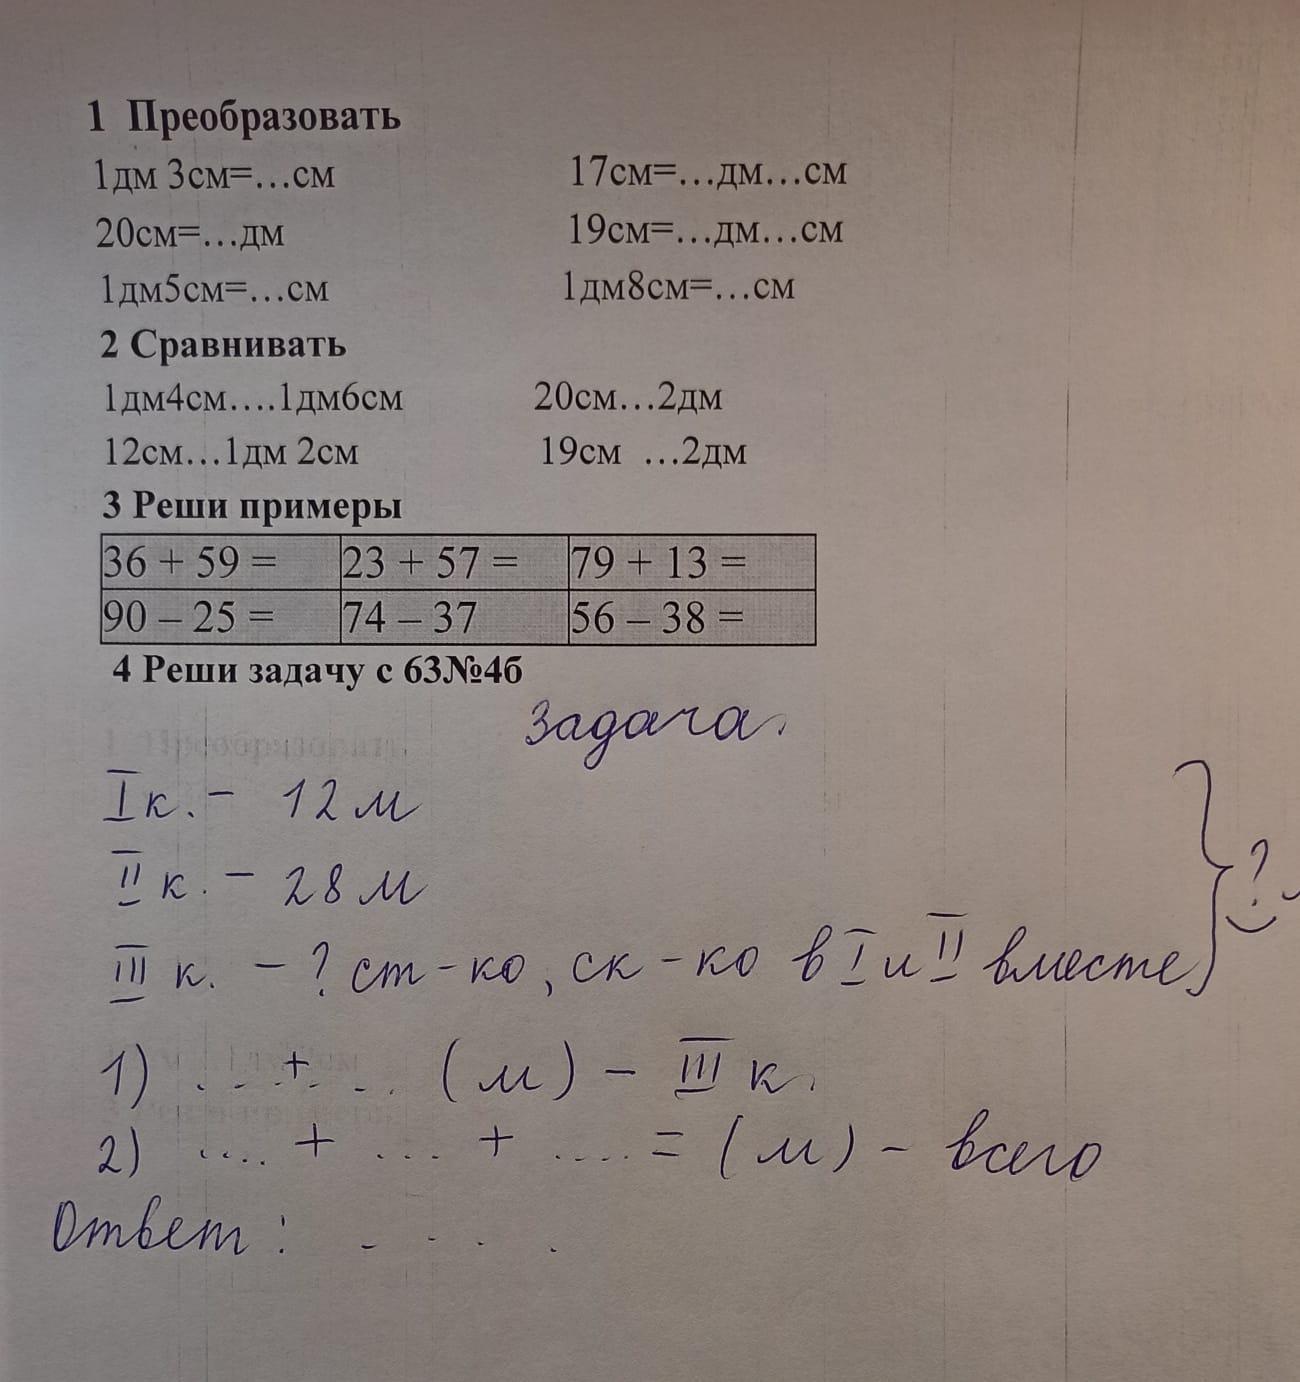 1 Преобразовать
1дм 3см=…см 17см=…дм…см
20см=…дм 19см=…дм…см
1дм5см=…см 1дм8см=…см
2 Сравнивать
1дм4см….1дм6см 20см…2дм
12см…1дм 2см 19см …2дм
3 Реши примеры
36 + 59 = 23 + 57 = 79 + 13 =
90 – 25 = 74 – 37 56 – 38 =
4 Реши задачу с 63№4б
Задача.
I к. – 12 м
II к. – 28 м
III к. – ? ст-ко, ск-ко в I и II вместе } ?
1) ...+... (м) – III к.
2) .... + ... + .... = (м) – всего
Ответ: ....